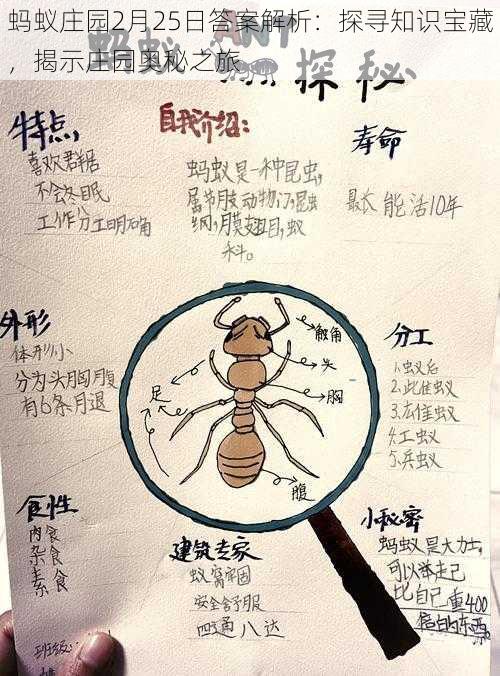 蚂蚁庄园2月25日答案解析：探寻知识宝藏
，揭示庄园奥秘之旅
蚂蚁 ANT 探秘
特点,
喜欢群居
不会冬眠
工作分工明确
自我介绍：
蚂蚁是一种昆虫,
属节肢动物门,昆虫
纲,膜翅目,蚁
科。
寿命
最长能活10年
外形
体形小
分为头胸腹
有6条月退
触角
头
胸
足
腹
分工
1.蚁后
2.此住蚁
3.左住蚁
4.工蚁
5.兵蚁
食性
肉食
杂食
素食
建筑专家
蚁窝牢固
安全舒服
四通八达
小秘密
蚂蚁是大力士,
可以举走己
比自己重400
倍的东西
班级：